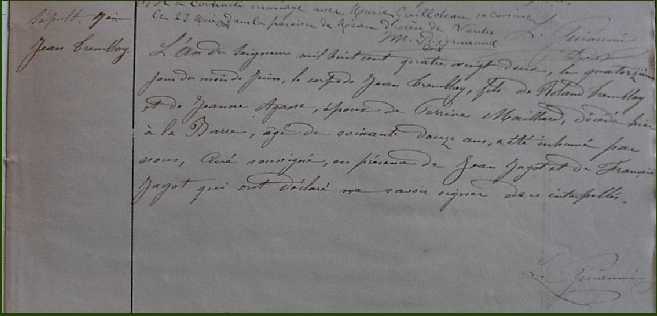 Sépult. Juin
Jean Trembley.
a contracté mariage avec Marie Guilloteau
le 23 dans la paroisse de diocèse de Nantes
L. Guianné
L'An du Seigneur mil huit cent quatre vingt deux, le quatorzième
jour du mois de Juin, le corps de Jean Trembley, fils de Roland Trembley
et de Jeanne Agasse, époux de Perrine Maillard, décédé hier
à la Barre, âgé de soixante douze ans, a été inhumé par
nous, Curé soussigné, en présence de Jean Jagot et de François
Jagot qui ont déclaré ne savoir signer de ce interpellés.
L. Guianné